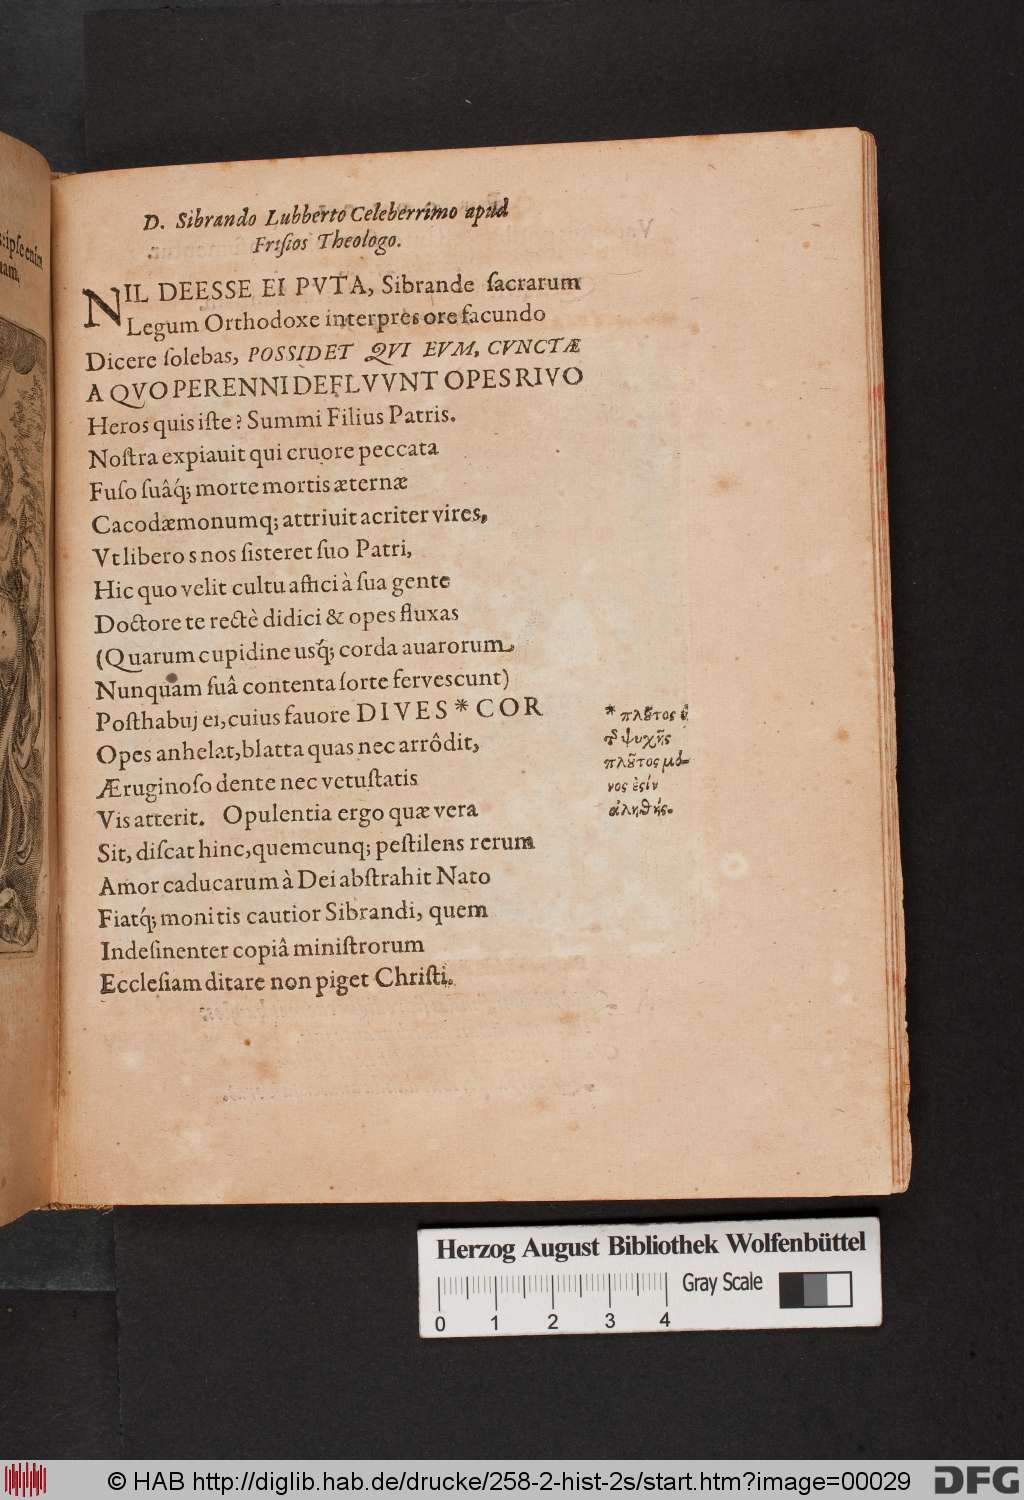 D. Sibrando Lubberto Celeberrimo apud
Frisios Theologo.
NIL DEESSE EI PVTA, Sibrande ſacrarum
Legum Orthodoxe interpres ore facundo
Dicere ſolebas, POSSIDET QVI EVM, CVNCTÆ
A QVO PERENNI DEFLVVNT OPES RIVO
Heros quis iſte? Summi Filius Patris.
Noſtra expiauit qui cruore peccata
Fuſo ſuâq́; morte mortis æternæ
Cacodæmonumq; attriuit acriter vires,
Vt libero s nos ſisteret ſuo Patri,
Hic quo velit cultu affici à ſua gente
Doctore te rectè didici & opes fluxas
(Quarum cupidine usq́; corda auarorum
Nunquam ſuâ contenta ſorte fervescunt)
Poſthabuj ei, cuius fauore DIVES * COR
Opes anhelat, blatta quas nec arrôdit,
Æruginoſo dente nec vetuſtatis
Vis atterit. Opulentia ergo quæ vera
Sit, diſcat hinc, quemcunq; peſtilens rerum
Amor caducarum à Dei abſtrahit Nato
Fiatq́; monitis cautior Sibrandi, quem
Indeſinenter copiâ miniſtrorum
Eccleſiam ditare non piget Chriſti.
* πλȣ̃τος ὁ
τ͂ ψυχῆς
πλȣ̃τος μό-
νος ἐϛίν
ἀληθής.
:ipſe enim
uam.
Herzog August Bibliothek Wolfenbüttel
Gray Scale
0 1 2 3 4
© HAB http://diglib.hab.de/drucke/258-2-hist-2s/start.htm?image=00029
DFG